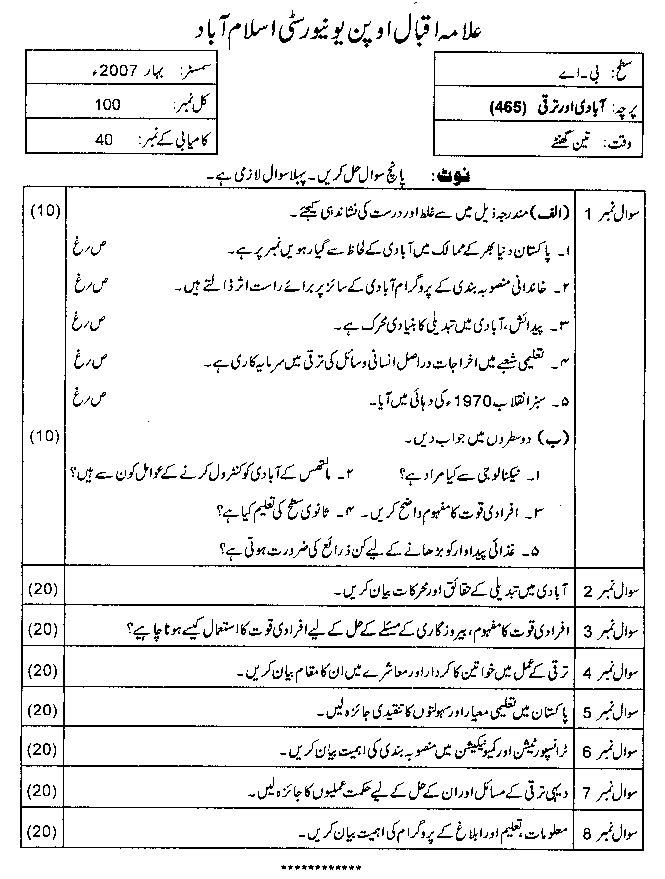 علامہ اقبال اوپن یونیورسٹی اسلام آباد
سطح: بی-اے
سمسٹر: بہار 2007ء
پرچہ: آبادی اور ترقی (465)
کل نمبر: 100
وقت: تین گھنٹے
کامیابی کے نمبر: 40
نوٹ: پانچ سوال حل کریں۔ پہلا سوال لازمی ہے۔
سوال نمبر 1 (الف) مندرجہ ذیل میں سے غلط اور درست کی نشاندہی کیجئے۔ (10)
۱۔ پاکستان دنیا بھر کے ممالک میں آبادی کے لحاظ سے گیارہویں نمبر پر ہے۔ ص/غ
۲۔ خاندانی منصوبہ بندی کے پروگرام آبادی کے سائز پر برائے راست اثر ڈالتے ہیں۔ ص/غ
۳۔ پیدائش، آبادی میں تبدیلی کا بنیادی محرک ہے۔ ص/غ
۴۔ تعلیمی شعبے میں اخراجات دراصل انسانی وسائل کی ترقی میں سرمایہ کاری ہے۔ ص/غ
۵۔ سبز انقلاب 1970ء کی دہائی میں آیا۔ ص/غ
(ب) دو سطروں میں جواب دیں۔ (10)
۱۔ ٹیکنالوجی سے کیا مراد ہے؟ ۲۔ مالتھس کے آبادی کو کنٹرول کرنے کے عوامل کون سے ہیں؟
۳۔ افرادی قوت کا مفہوم واضح کریں۔ ۴۔ ثانوی سطح کی تعلیم کیا ہے؟
۵۔ غذائی پیداوار کو بڑھانے کے لیے کن ذرائع کی ضرورت ہوتی ہے؟
سوال نمبر 2 آبادی میں تبدیلی کے حقائق اور محرکات بیان کریں۔ (20)
سوال نمبر 3 افرادی قوت کا مفہوم، بیروزگاری کے مسئلے کے حل کے لیے افرادی قوت کا استعمال کیسے ہونا چاہیے؟ (20)
سوال نمبر 4 ترقی کے عمل میں خواتین کا کردار اور معاشرے میں ان کا مقام بیان کریں۔ (20)
سوال نمبر 5 پاکستان میں تعلیمی معیار اور سہولتوں کا تنقیدی جائزہ لیں۔ (20)
سوال نمبر 6 ٹرانسپورٹیشن اور کمیونیکیشن میں منصوبہ بندی کی اہمیت بیان کریں۔ (20)
سوال نمبر 7 دیہی ترقی کے مسائل اور ان کے حل کے لیے حکمت عملیوں کا جائزہ لیں۔ (20)
سوال نمبر 8 معلومات، تعلیم اور ابلاغ کے پروگرام کی اہمیت بیان کریں۔ (20)
************